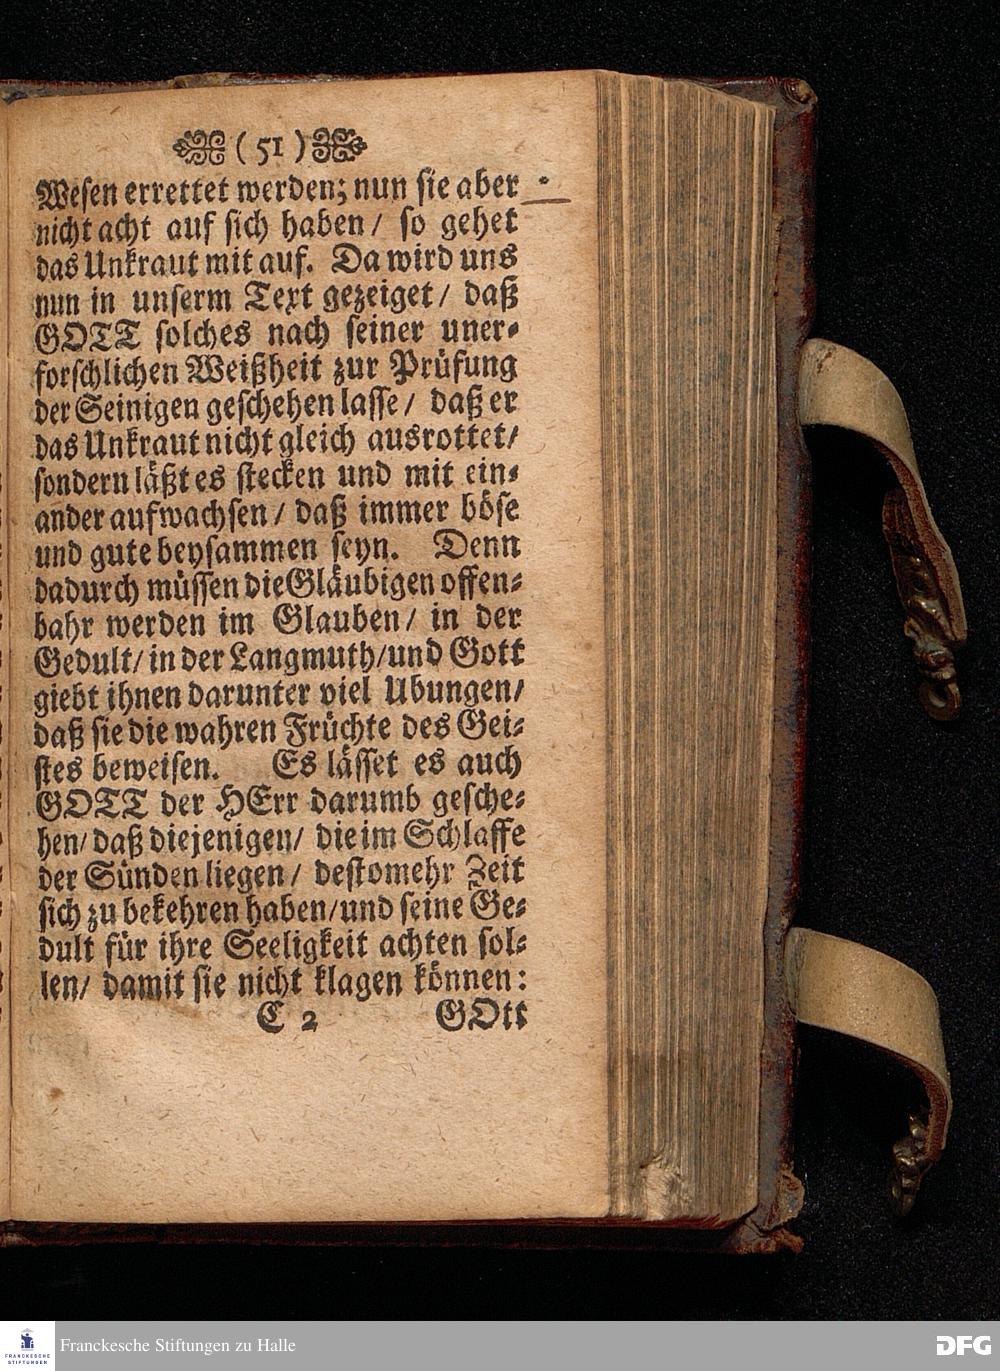 ( 51 )
Wesen errettet werden; nun sie aber
nicht acht auf sich haben / so gehet
das Unkraut mit auf. Da wird uns
nun in unserm Text gezeiget / daß
GOTT solches nach seiner uner-
forschlichen Weißheit zur Prüfung
der Seinigen geschehen lasse / daß er
das Unkraut nicht gleich ausrottet /
sondern läßt es stecken und mit ein-
ander aufwachsen / daß immer böse
und gute beysammen seyn. Denn
dadurch müssen die Gläubigen offen-
bahr werden im Glauben / in der
Gedult / in der Langmuth / und Gott
giebt ihnen darunter viel Ubungen /
daß sie die wahren Früchte des Gei-
stes beweisen. Es lässet es auch
GOTT der HErr darumb gesche-
hen / daß diejenigen / die im Schlaffe
der Sünden liegen / destomehr Zeit
sich zu bekehren haben / und seine Ge-
dult für ihre Seeligkeit achten sol-
len / damit sie nicht klagen können:
C 2 GOtt
FRANCKESCHE
STIFTUNGEN
Franckesche Stiftungen zu Halle
DFG